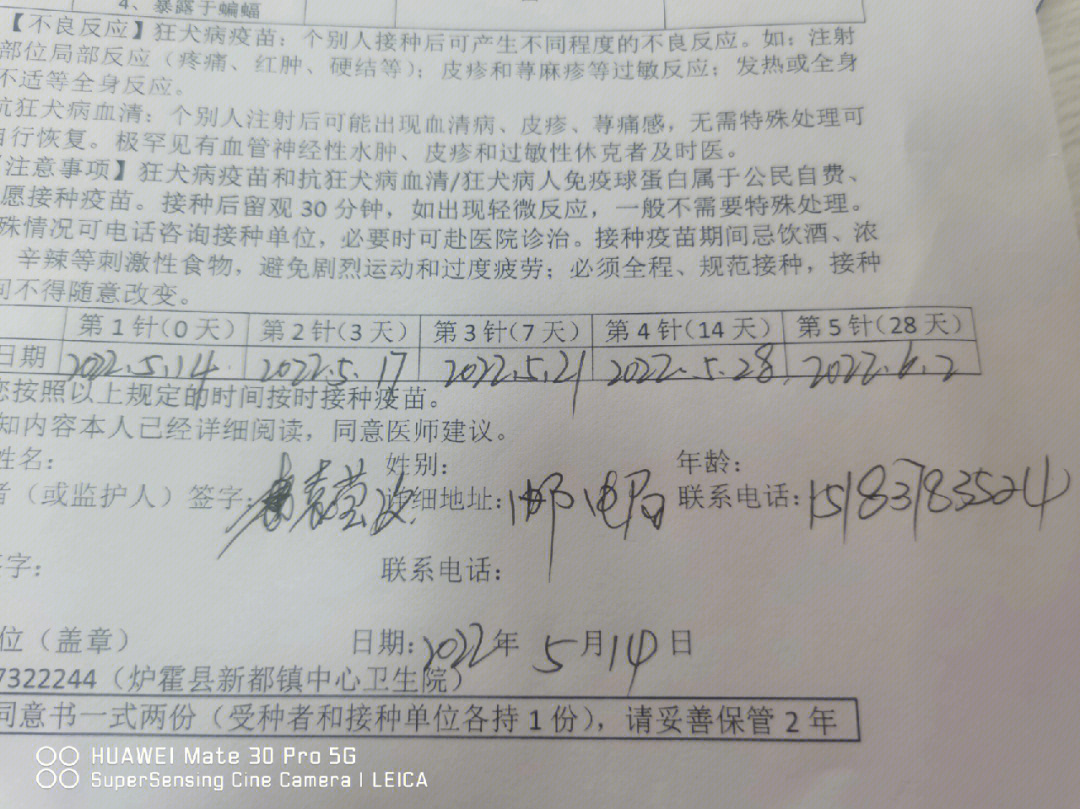 4、暴露于蝙蝠
【不良反应】狂犬病疫苗：个别人接种后可产生不同程度的不良反应。如：注射
部位局部反应（疼痛、红肿、硬结等）；皮疹和荨麻疹等过敏反应；发热或全身
不适等全身反应。
抗狂犬病血清：个别人注射后可能出现血清病、皮疹、荨痛感，无需特殊处理可
自行恢复。极罕见有血管神经性水肿、皮疹和过敏性休克者及时医。
注意事项】狂犬病疫苗和抗狂犬病血清/狂犬病人免疫球蛋白属于公民自费、
愿接种疫苗。接种后留观 30 分钟，如出现轻微反应，一般不需要特殊处理。
殊情况可电话咨询接种单位，必要时可赴医院诊治。接种疫苗期间忌饮酒、浓
辛辣等刺激性食物，避免剧烈运动和过度疲劳；必须全程、规范接种，接种
间不得随意改变。
第 1 针(0 天) 第 2 针(3 天) 第 3 针(7 天) 第 4 针(14 天) 第 5 针(28 天)
日期 2022.5.14 2022.5.17 2022.5.21 2022.5.28 2022.6.2
您按照以上规定的时间按时接种疫苗。
知内容本人已经详细阅读，同意医师建议。
姓名： 姓别： 年龄：
者（或监护人）签字： 详细地址：邮电局 联系电话：15183783524
签字： 联系电话：
位（盖章） 日期：2022年 5月14日
7322244（炉霍县新都镇中心卫生院）
同意书一式两份（受种者和接种单位各持 1 份），请妥善保管 2 年
HUAWEI Mate 30 Pro 5G
SuperSensing Cine Camera | LEICA